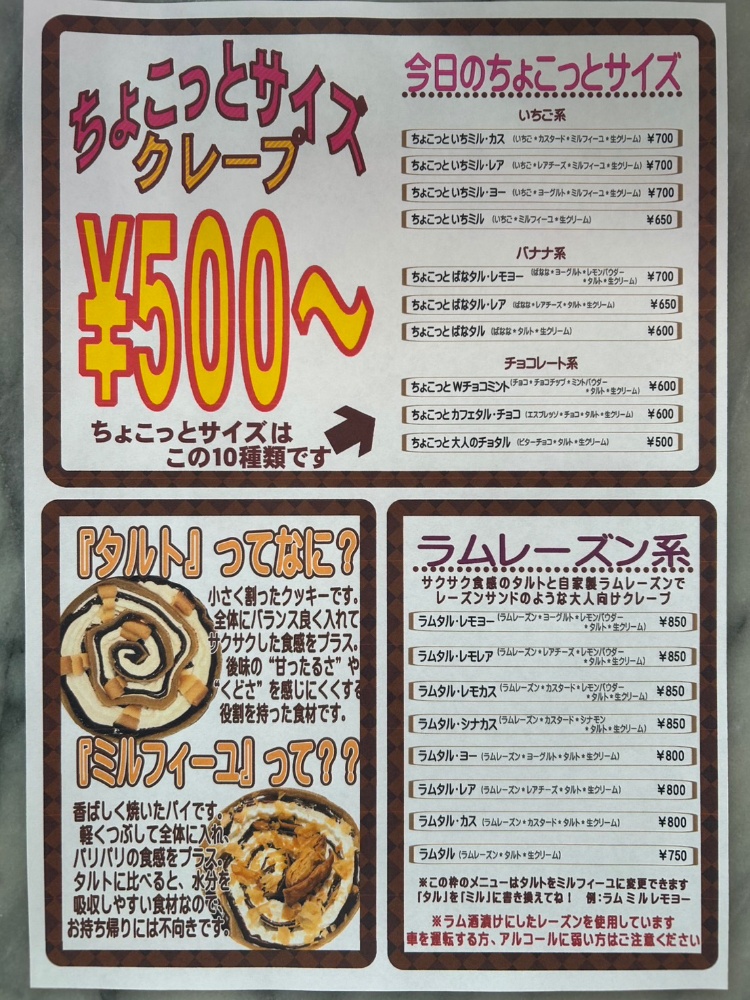 ちょこっとサイズ
クレープ
¥500～
ちょこっとサイズは
この10種類です
今日のちょこっとサイズ
いちご系
ちょこっといちミル・カス (いちご＊カスタード＊ミルフィーユ＊生クリーム) ¥700
ちょこっといちミル・レア (いちご＊レアチーズ＊ミルフィーユ＊生クリーム) ¥700
ちょこっといちミル・ヨー (いちご＊ヨーグルト＊ミルフィーユ＊生クリーム) ¥700
ちょこっといちミル (いちご＊ミルフィーユ＊生クリーム) ¥650
バナナ系
ちょこっとばなタル・レモヨー (ばなな＊ヨーグルト＊レモンパウダー ¥700
＊タルト＊生クリーム)
ちょこっとばなタル・レア (ばなな＊レアチーズ＊タルト＊生クリーム) ¥650
ちょこっとばなタル (ばなな＊タルト＊生クリーム) ¥600
チョコレート系
ちょこっとWチョコミント (チョコ＊チョコチップ＊ミントパウダー ¥600
＊タルト＊生クリーム)
ちょこっとカフェタル・チョコ (エスプレッソ＊チョコ＊タルト＊生クリーム) ¥600
ちょこっと大人のチョタル (ビターチョコ＊タルト＊生クリーム) ¥500
『タルト』ってなに？
小さく割ったクッキーです。
全体にバランス良く入れて
サクサクした食感をプラス。
後味の“甘ったるさ”や
“くどさ”を感じにくくする
役割を持った食材です。
『ミルフィーユ』って？？
香ばしく焼いたパイです。
軽くつぶして全体に入れ、
パリパリの食感をプラス。
タルトに比べると、水分を
吸収しやすい食材なので、
お持ち帰りには不向きです。
ラムレーズン系
サクサク食感のタルトと自家製ラムレーズンで
レーズンサンドのような大人向けクレープ
ラムタル・レモヨー (ラムレーズン＊ヨーグルト＊レモンパウダー ¥850
＊タルト＊生クリーム)
ラムタル・レモレア (ラムレーズン＊レアチーズ＊レモンパウダー ¥850
＊タルト＊生クリーム)
ラムタル・レモカス (ラムレーズン＊カスタード＊レモンパウダー ¥850
＊タルト＊生クリーム)
ラムタル・シナカス (ラムレーズン＊カスタード＊シナモン ¥850
＊タルト＊生クリーム)
ラムタル・ヨー (ラムレーズン＊ヨーグルト＊タルト＊生クリーム) ¥800
ラムタル・レア (ラムレーズン＊レアチーズ＊タルト＊生クリーム) ¥800
ラムタル・カス (ラムレーズン＊カスタード＊タルト＊生クリーム) ¥800
ラムタル (ラムレーズン＊タルト＊生クリーム) ¥750
※この枠のメニューはタルトをミルフィーユに変更できます
「タル」を「ミル」に書き換えてね！ 例：ラム ミル レモヨー
※ラム酒漬けにしたレーズンを使用しています
車を運転する方、アルコールに弱い方はご注意ください